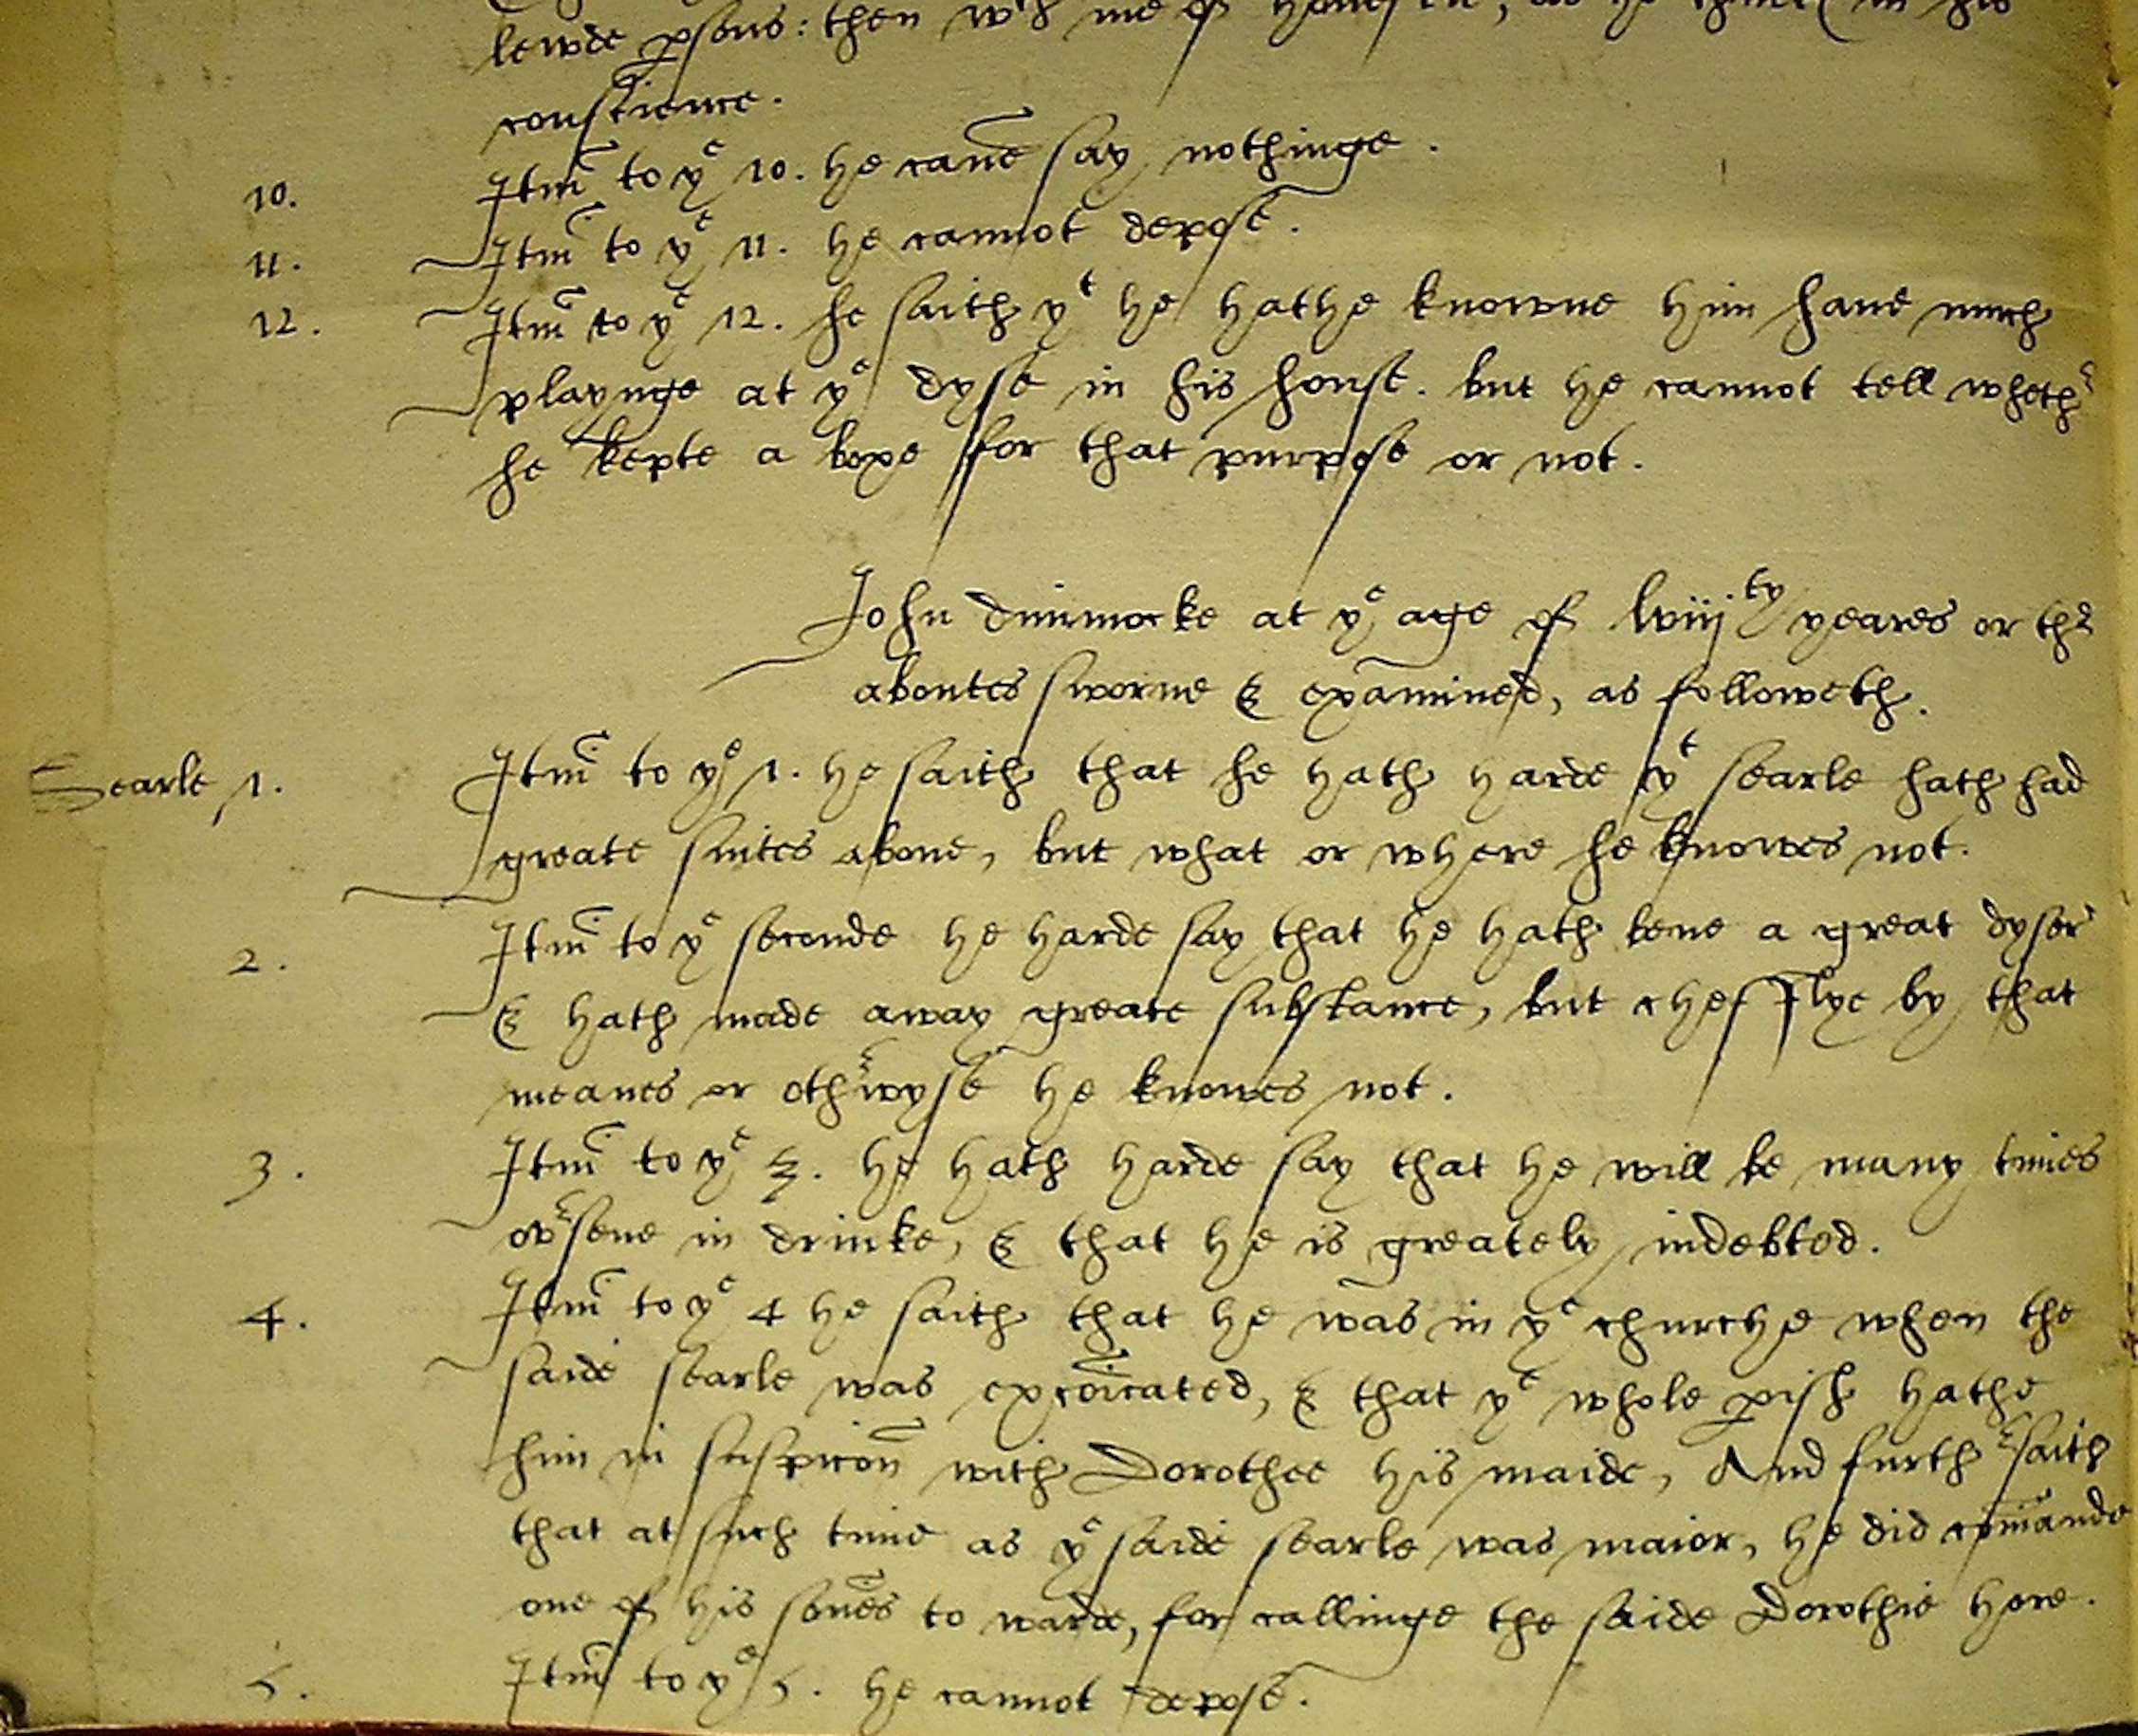 lewde psons: then wth me of honestie, as he thinck in his
conscience.
10. Itm to ye 10. he cane say nothinge.
11. Itm to ye 11. he cannot depose.
12. Itm to ye 12. he saith yt he hathe knowne him haue much
playnge at ye dyse in his house. but he cannot tell wheth
he kepte a boxe for that purpose or not.
John dimmocke at ye age of lviijty yeares or the
aboutes sworne & examined, as followeth.
Searle 1. Itm to ye 1. he saith that he hath harde yt searle hath had
greate suites aboue, but what or where he knowes not.
2. Itm to ye seconde he harde say that he hath bene a great dyser
& hath made away greate substance, but cheflye by that
meanes or othwyse he knowes not.
3. Itm to ye 3. he hath harde say that he will be many times
ovsene in drinke, & that he is greately indebted.
4. Itm to ye 4 he saith that he was in ye churche when the
saide searle was excoicated, & that ye whole pish hathe
him in suspicon with Dorothee his maide, And furth saith
that at such time as ye saide searle was maior, he did comande
one of his sones to warde, for callinge the saide Dorothie hore.
5. Itm to ye 5. he cannot depose.